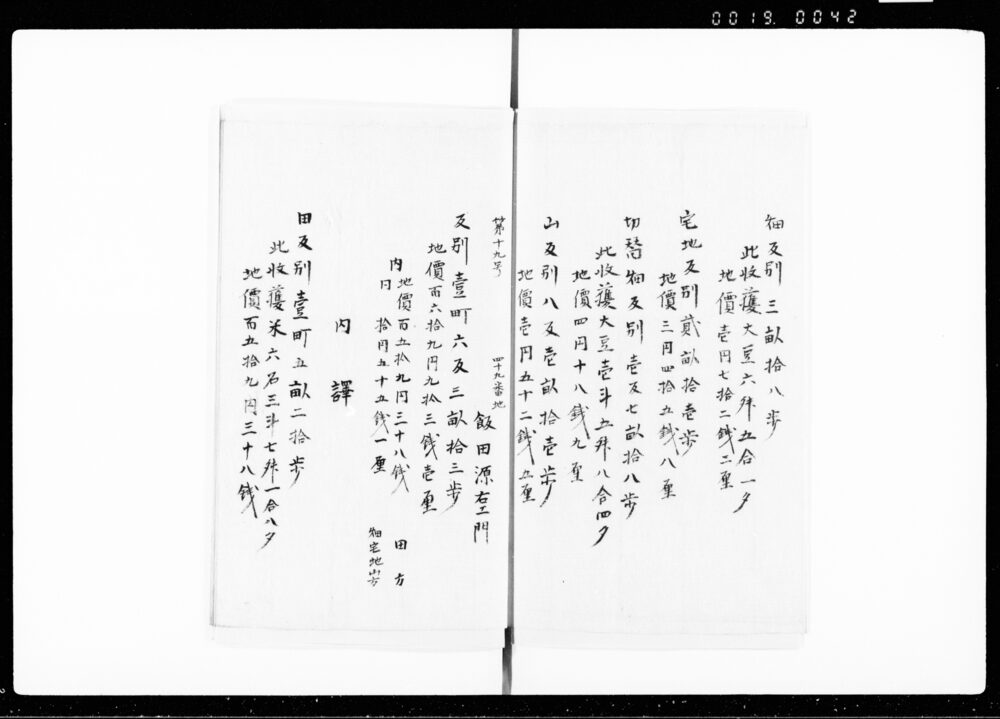 0019. 0042
畑反別 三畝拾八歩
此收穫大豆六舛五合一夕
地價壱円七拾二銭二厘
宅地反別貮畝拾壱歩
地價三円四拾五銭八厘
切替畑反別壱反七畝拾八歩
此收穫大豆壱斗五舛八合四夕
地價四円十八銭九厘
山反別八反壱畝拾壱歩
地價壱円五十二銭五厘
第十九号 四十九番地
飯田源右エ門
反別壹町六反三畝拾三歩
地價百六拾九円九拾三銭壱厘
内 地價百五拾九円三十八銭 田方
円 拾円五十五銭一厘 畑宅地山方
内譯
田反別壹町五畝二拾歩
此收穫米六石三斗七舛一合八夕
地價百五拾九円三十八銭